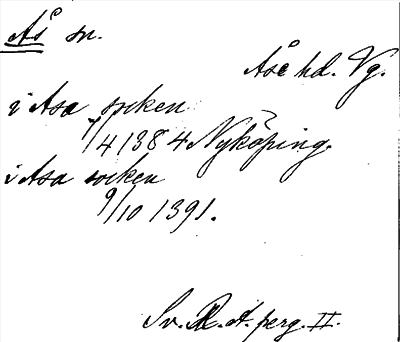 Ås sn.
Åse hd. Vg.
i Asa soken
1/4 1384 Nyköping.
i Asa soken
9/10 1391.
Sv. R. A. perg. II.